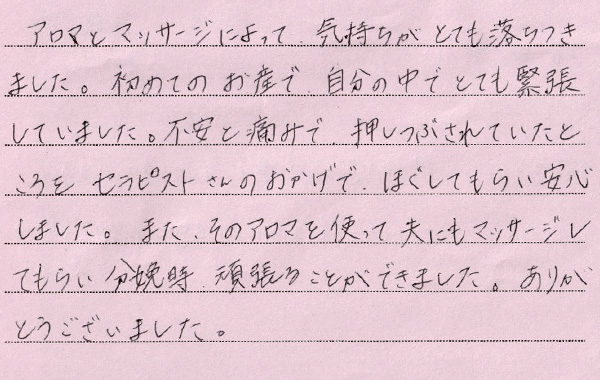 アロマとマッサージによって、気持ちがとても落ちつき
ました。初めてのお産で、自分の中でとても緊張
していました。不安と痛みで、押しつぶされていたと
ころをセラピストさんのおかげで、ほぐしてもらい安心
しました。また、そのアロマを使って夫にもマッサージし
てもらい分娩時、頑張ることができました。ありが
とうございました。